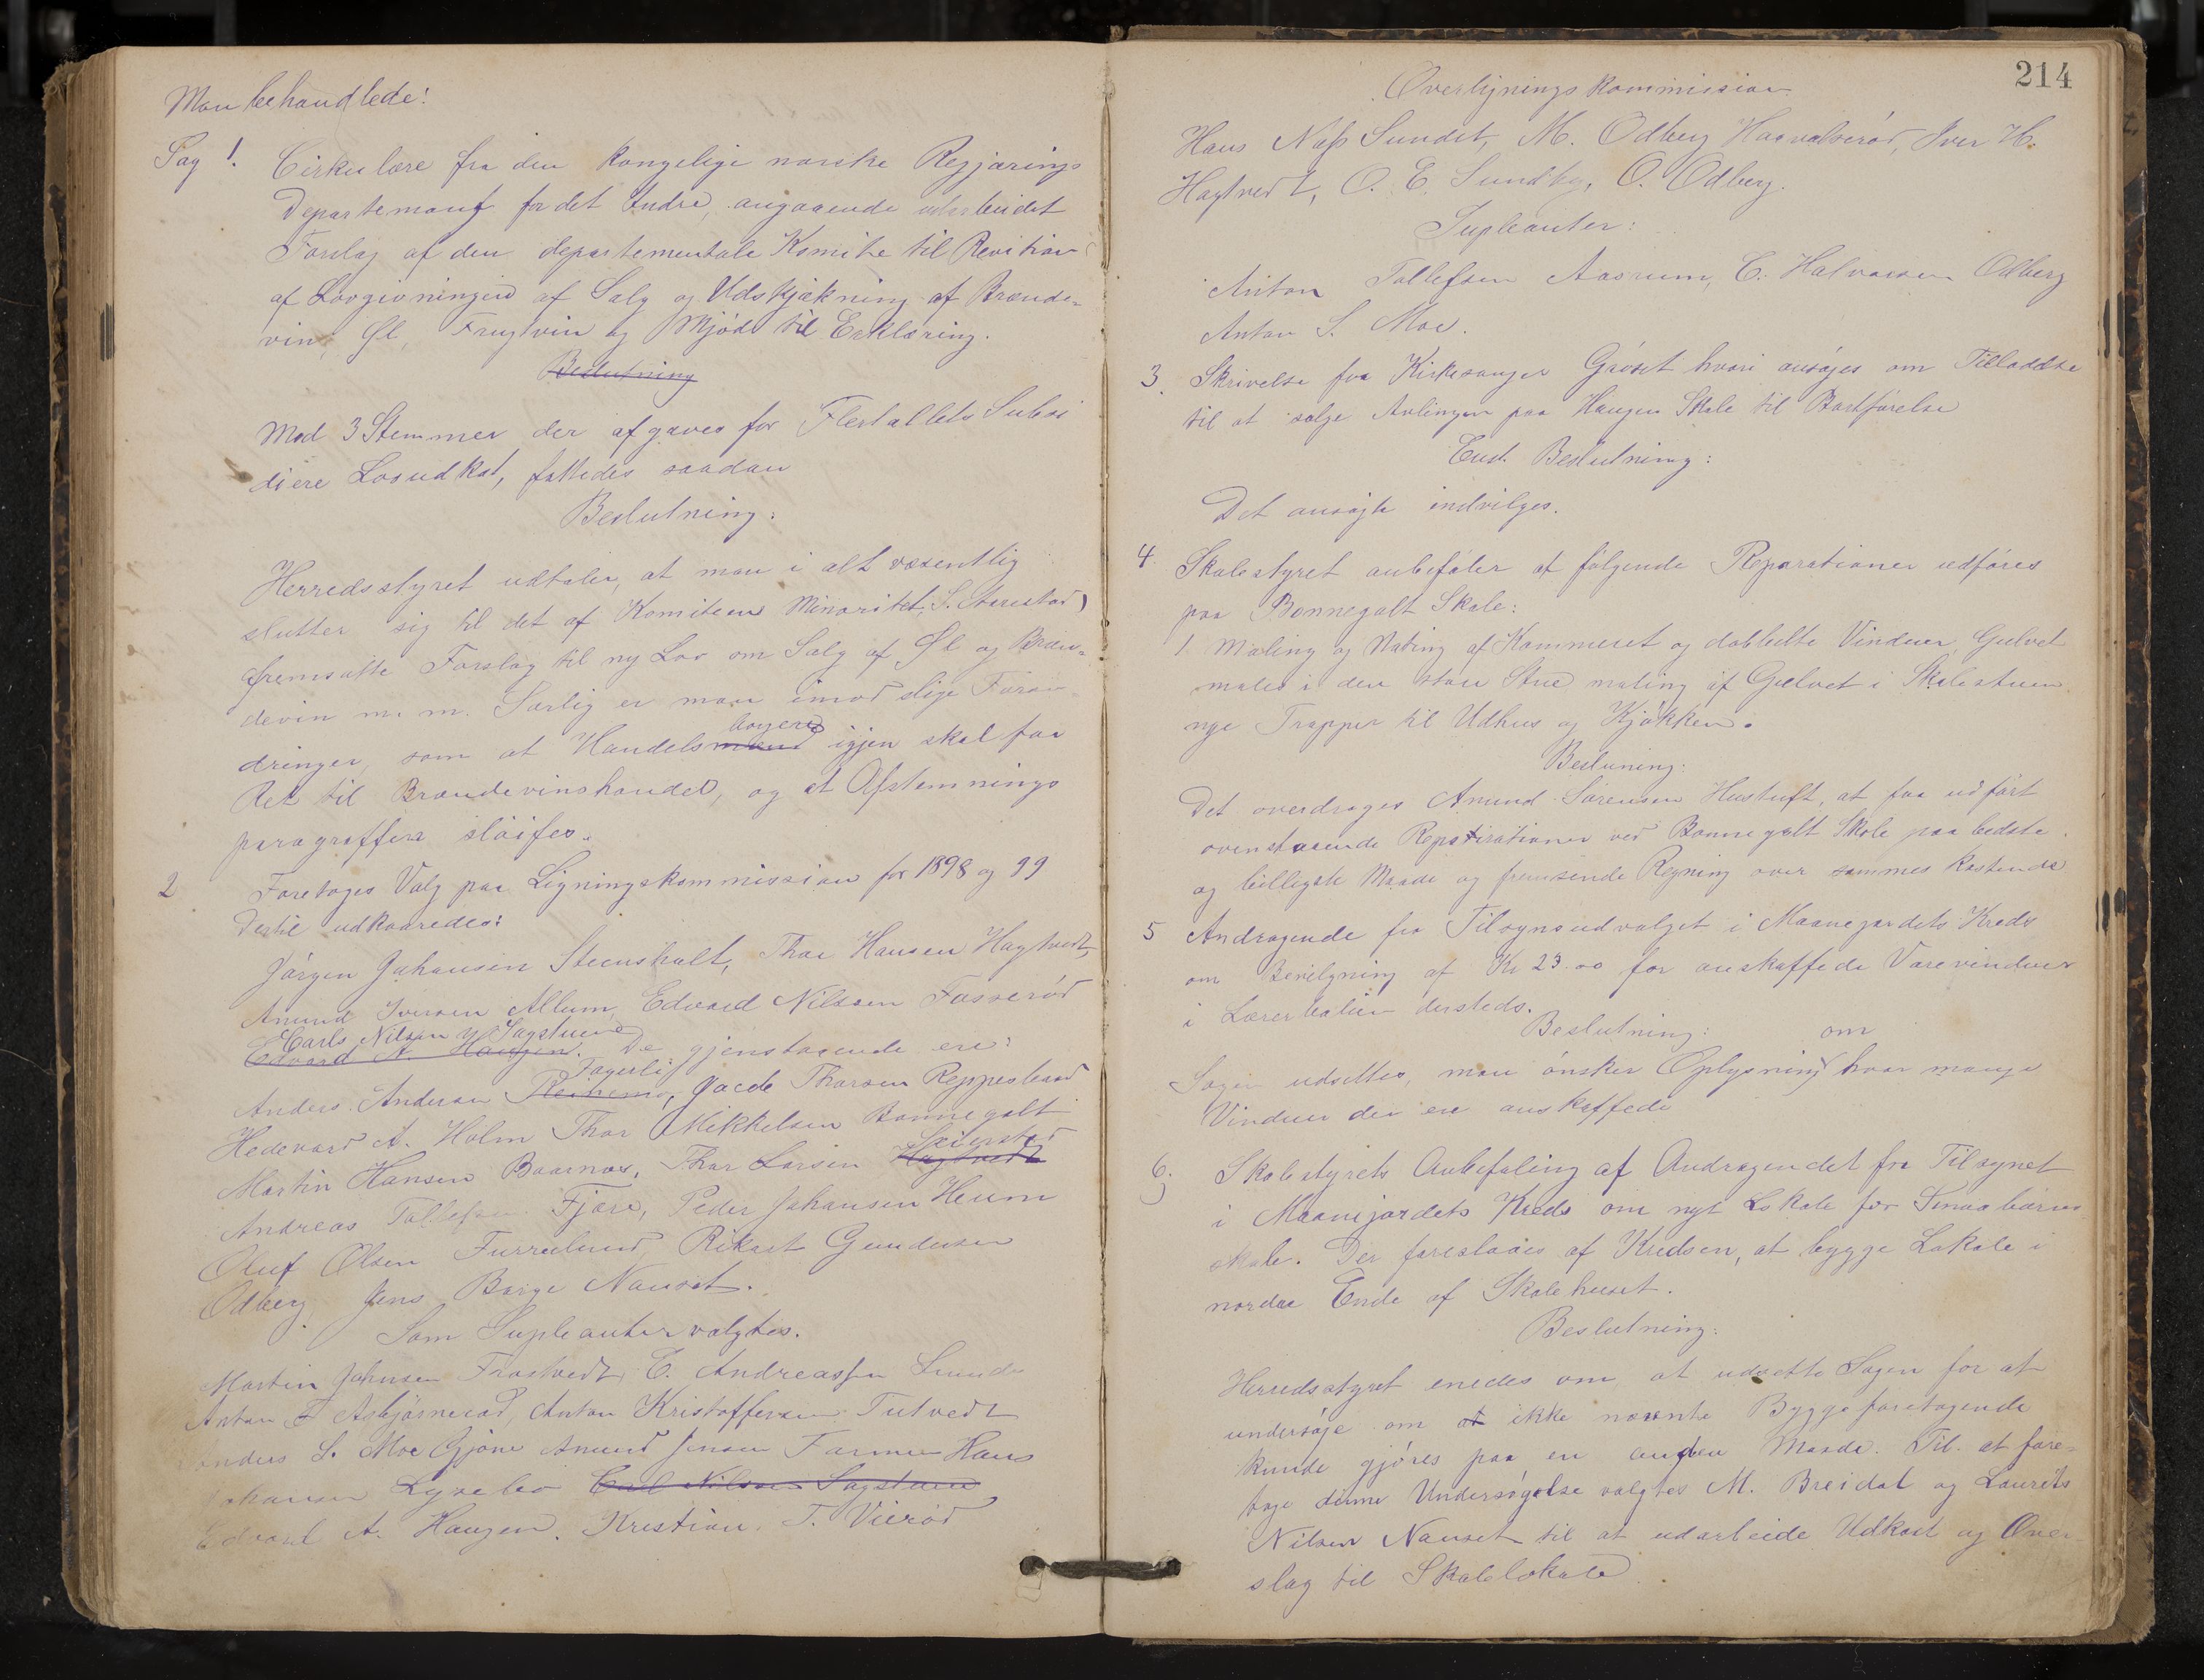 Man behandlede:
Sag 1. Cirkulære fra den kongelige norske Regjærings
Departement for det Indre, angaaende udarbeidet
Forslag af den departementale Komite til Revition
af Lovgivningen af Salg og Udskjækning af Brænde-
vin, Øl, Frugtvin og Mjöd til Erklæring.
Beslutning
Mod 3 Stemmer der afgaves for Flertallets Subsi
diere Lovudkast, fattedes saadan
Beslutning:
Herredsstyret udtaler, at man i alt væsentlig
slutter sig til det af Komiteens Minoritet,
fremsatte Forslag til ny Lov om Salg af Øl og Bræn-
devin m. m. Særlig er man imod slige Foran-
borgere
dringer, som at Handelsmænd igjen skal faa
Ret til Brændevinshandel, og at Afstemnings
paragraffere slöifes.
2 Foretoges Valg paa Ligningskommission for 1898 og 99
Dertil udkaaredes:
Jörgen Johansen Steensholt, Thor Hansen Hagtvedt,
Amund Iversen Allum, Edvard Nilsen Fosseröd
Carls Nilsen Sagstuen
Edvard A. Haugen. De gjenstaaende ere:
Fagerli
Anders Andersen Reinemo, Jacob Thorsen Reppestaad
Hedevard A. Holm Thor Mikkelsen Bonnegolt
Skierstad
Martin Hansen Baarnæs, Thor Larsen Hagtvedt
Andreas Tollefsen Fjære, Peder Johansen Heum
Oluf Olsen Furrelund, Rikart Gundersen
Odberg, Jens Borge Nauset.
Som Supleanter valgtes.
Martin Johnsen Trostvedt, E. Andreassen Sunde
Anton F Asbjörneröd, Anton Kristoffersen Tutvedt
Anders S. Moe Gjöne Amund Jensen Farmen Hans
Johansen Lysebo Carl Nilsen Sagstuen
Edvard A. Haugen. Kristian. T. Vieröd
214
Overligningskommission
Hans Næss Sundet, M. Odberg Haavalseröd, Iver H.
Hagtvedt, O. E. Sundby, O. Odberg.
Supleanter:
Anton Tollefsen Aasrum, C. Halvorsen Odberg
Anton S. Moe.
3. Skrivelse fra Kirkesanger Gröset hvori ansöges om Tilladelse
til at sælge Avlingen paa Haugen Skole til Bortförelse
Enst. Beslutning:
Det ansögte indvilges.
4. Skolestyret anbefaler at fölgende Reparationer udföres
paa Bonnegolt Skole:
1. Maling og Nating af Kammeret og dobbelte Vinduer, Gulvet
males i den store Stue maling af Gulvet i Skolestuen
nye Trapper til Udhus og Kjökken.
Besluning:
Det overdrages Amund Sörensen Hustuft, at faa udfört
ovenstaaende Repatirationer ved Bonnegolt Skole paa bedste
og billigste Maade og fremsende Regning over sammes Kostende
5 Andragende fra Tilsynsudvalget i Maanejordets Kreds
om Bevilgning af Kr 23.00 for anskaffede Varevinduer
i Lærerbolien dersteds.
Beslutning:
om
Sagen udsættes, man önsker Oplysning hvor mange
Vinduer der ere anskaffede
6. Skolestyrets Anbefaling af Andragendet fra Tilsynet
i Maanejordets Kreds om nyt Lokale for Smaabarns
skole. Der foreslaaes af Kredsen, at bygge Lokale i
nordre Ende af Skolehuset.
Beslutning:
Herredsstyret enedes om at udsætte Sagen for at
undersöge om at ikke nævnte Byggeforetagende
kunde gjöres paa en anden Maade. Til at fore-
tage denne Undersögelse valgtes M. Breidal og Laurits
Nilsen Nauset til at udarbeide Udkast og Over-
slag til Skolelokale